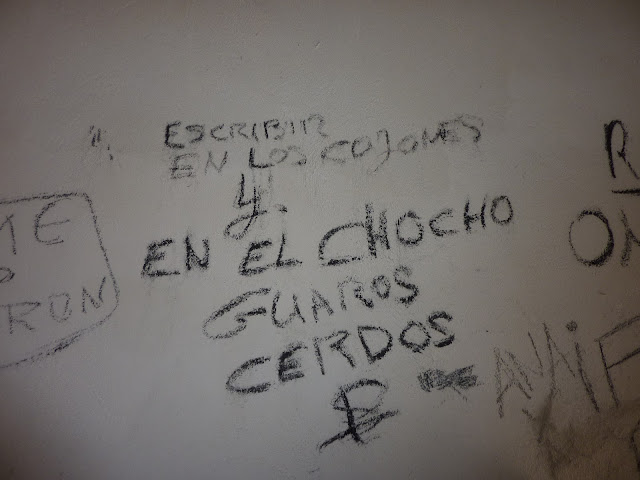 ESCRIBIR
EN LOS COJONES
Y.
EN EL CHOCHO
GUAROS
CERDOS
ME
RON
R
ON
ANAIF